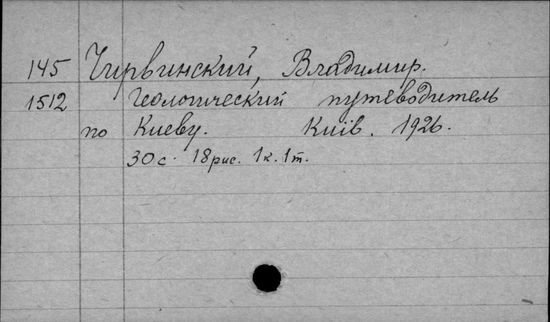 145 Чирвинский, Владимир.
1512 Геологический путеводитель
по Киеву. Киів. 1926.
30с. 18рис. 1к. 1т.